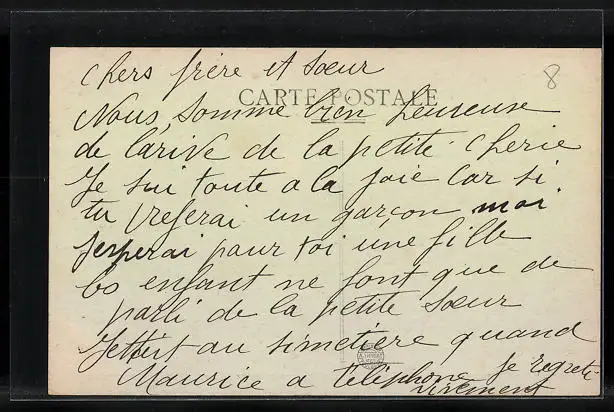 chers frère et sœur
8
CARTE POSTALE
Nous somme bien heureuse
de larive de la petite cherie
Je sui toute a la joie Car si
tu preferai un garçon moi
Jesperai pour toi une fille
bo enfant ne font que de
parli de la petite sœur
Jettèrt au simetiere quand
Maurice a téléphone Je regreti
vivement